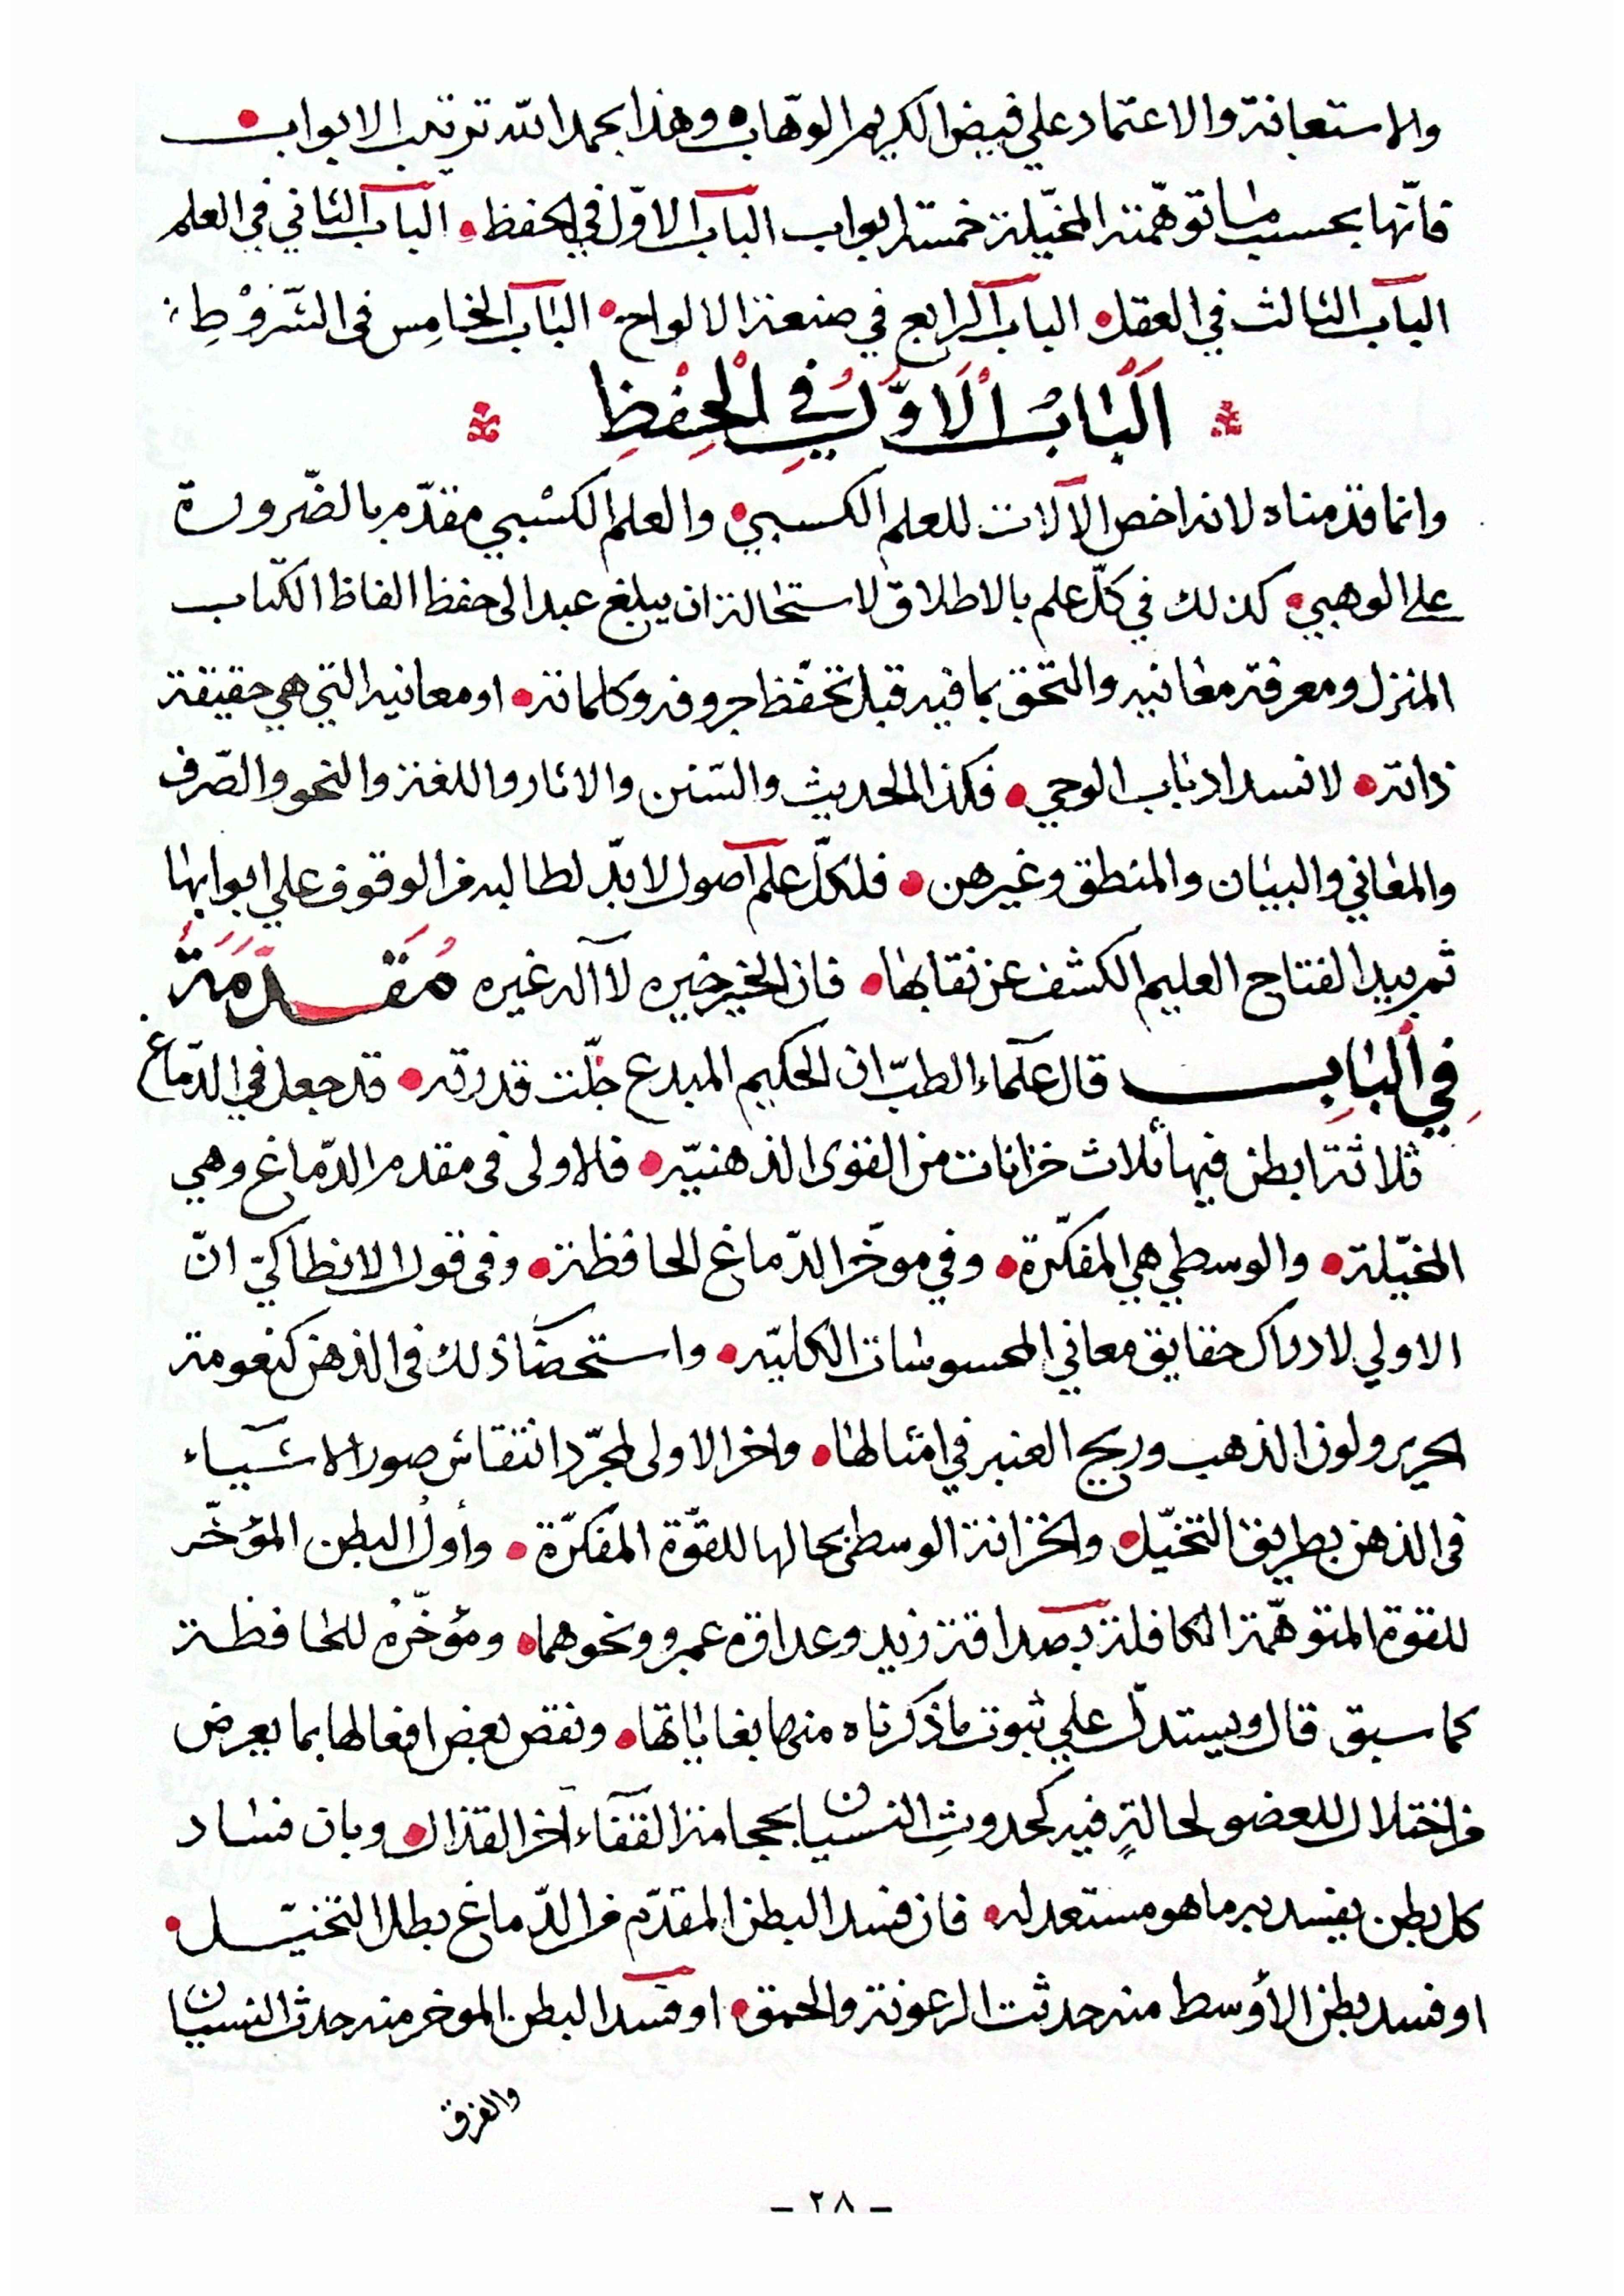 والاستعانة والاعتماد علي فيض الكريم الوهّاب • وهذا بحمد الله ترتيب الابواب •
فانّها بحسب ما توهّمته المخيّلة خمسة ابواب الباب الاوّل في الحفظ • الباب الثاني في العلم
الباب الثالث في العقل • الباب الرابع في صنعة الالواح • الباب الخامس في الشّروْطِ
اَلْبَابُ الْاَوَّلُ فِي الْحِفْظِ
وانما قدمناه لانه اخص الآلات للعلم الكسبي • والعلم الكسْبي مقدّم بالضّرورة
على الوهبي • كذلك في كلّ علم بالاطلاق لاستحالة ان يبلغ عبد الى حفظ الفاظ الكتاب
المنزل ومعرفة معانيه والتحقق بما فيه قبل تحفّظ حروفه وكلماته • او معانيه التي هي حقيقة
ذاته • لانسداد باب الوحي • فكذا الحديث والسّنن والاثار واللغة والنحو والصّرف
والمعاني والبيان والمنطق وغيرهن • فلكلّ علم آصول لابدّ لطالبه من الوقوف علي ابوابها
ثم بيد الفتاح العليم الكشف عن نقابها • فان الخير خيره لا آله غيره مُقَدِّمَةٌ
فِي الْبَابِ قال علمآء الطبّ ان الحكيم المبدع جلّت قدرته • قد جعل في الدّماغ
ثلاثة ابطن فيها ثلاث خزانات من القوى الذهنيّه • فالاولى في مقدم الدّماغ وهي
المخيّلة • والوسطي هي المفكّرة • وفي موخّر الدّماغ الحافظة • وفي قول الانطاكيّ انّ
الاولي لادراك حقايق معاني المحسوسات الكليّه • واستحضار ذلك في الذهن كنعومة
الحرير ولون الذهب وريح العنبر في امثالها • واخر الاولى لمجرّد انتقاش صور الاشيآء
في الذهن بطريق التخيّل • والخزانة الوسطى بحالها للقوّة المفكرّة • وأولُ البطن المؤخّر
للقوة المتوهّمة الكافلة بصداقة زيد وعداوة عمرو ونحوهما • ومؤخّرهُ للحافظة
كما سبق قال ويستدلّ علي ثبوت ماذكرناه منها بغاياتها • ونقص بعض افعالها بما يعرض
من اختلال للعضو لحالةٍ فيه كحدوثِ النسيان بحجامة القفآء آخر القذال • وبان فساد
كل بطن يفسد به ما هو مستعد له • فان فسد البطن المقدّم من الدّماغ بطل التخيّل •
او فسد بطن الأوسط منه حدثت الرعونة والحمق • او فسد البطن الموخر منه حدث النسيان
والفرق
- ٢٨ -